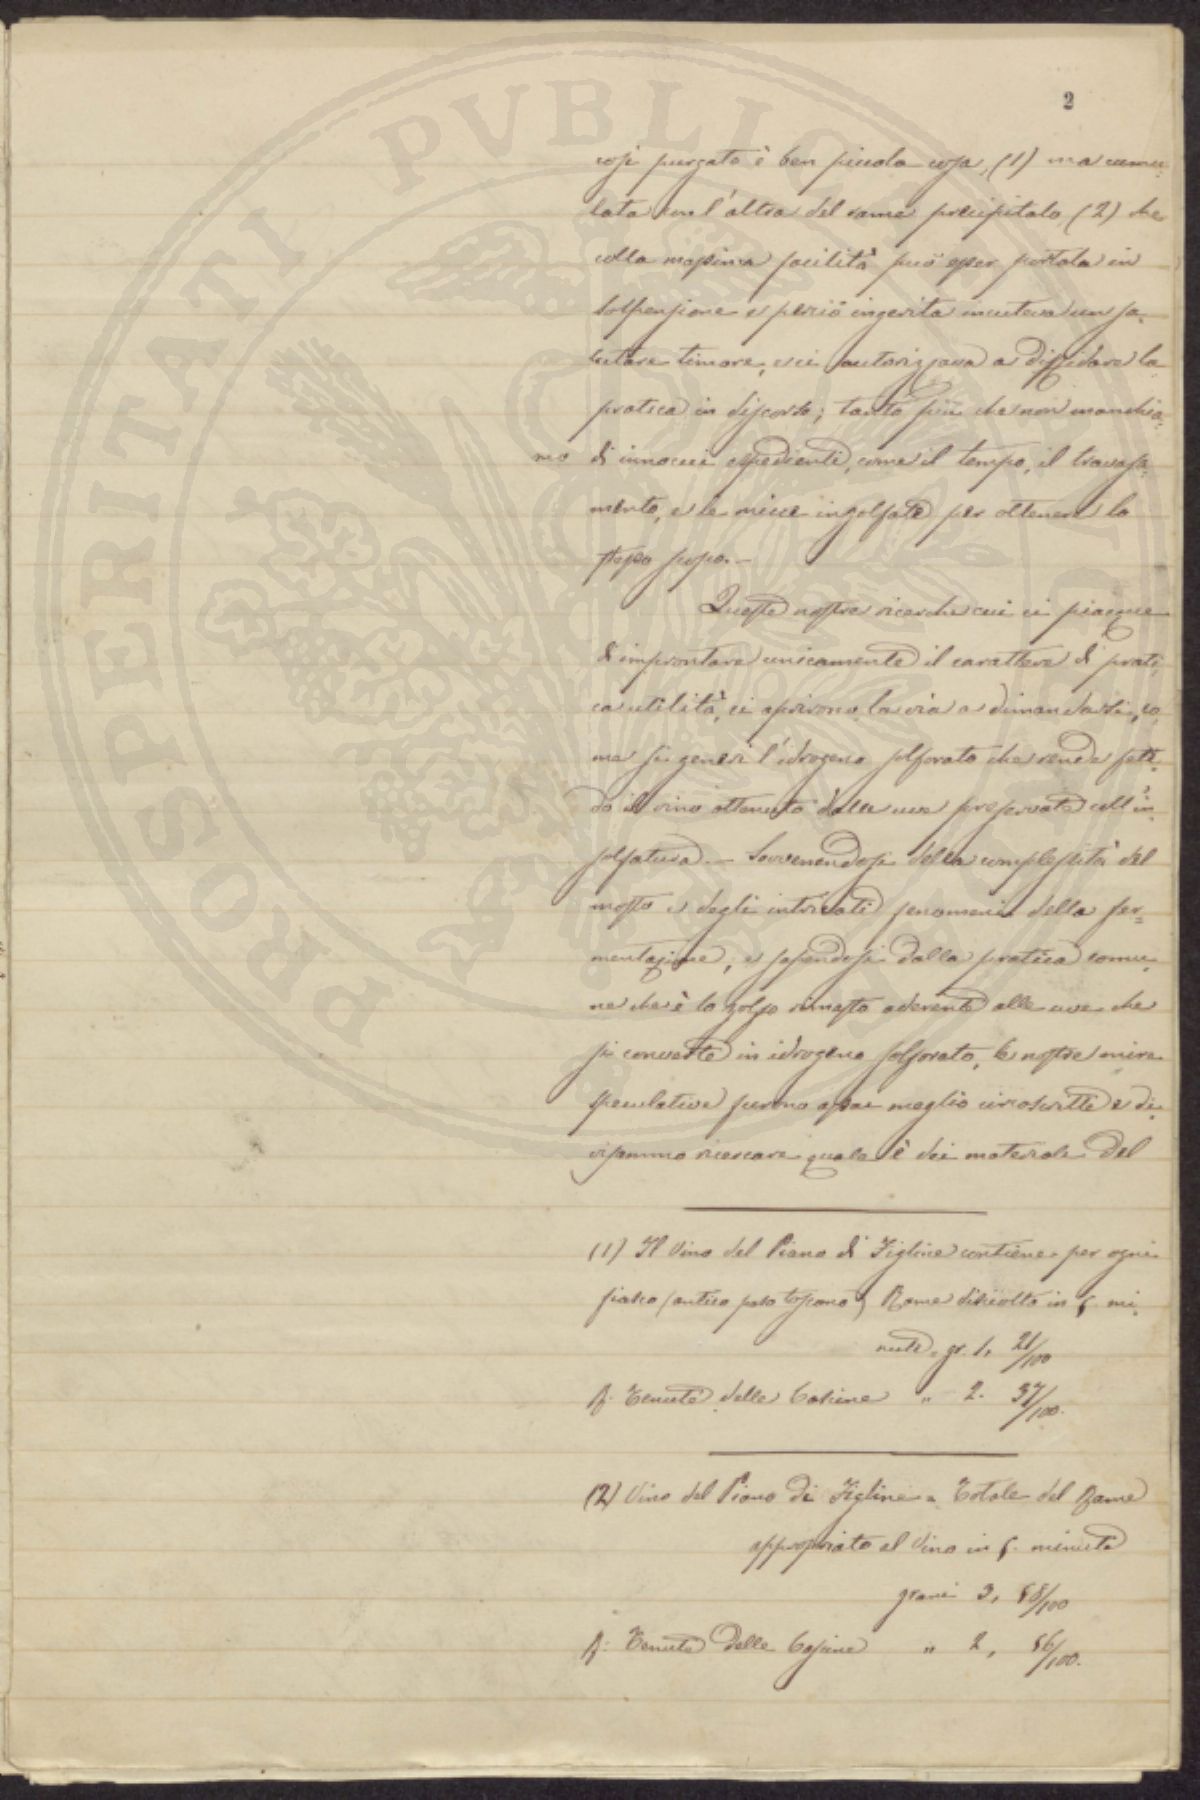 2
così purgato è ben piccola cosa, (1) ma cumu-
lata con l'altra del rame precipitato (2) che
colla massima facilità può esser portata in
sospensione e perciò ingerita incuteva un sa-
lutare timore, e ci autorizzava a diffidare la
pratica in discorso; tanto più che non manchia-
mo di innocui espedienti, come il tempo, il travasa-
mento, e le micce insolfate per ottenere lo
stesso scopo. —
Queste nostre ricerche cui ci piacque
di improntare unicamente il carattere di prati-
ca utilità, ci aprirono la via a dimandarsi, co-
me si generi l'idrogeno solforato che rende feti-
do il vino ottenuto dalle uve preservate coll'in-
solfatura. — Sovvenendosi della complessità del
mosto e degli intricati fenomeni della fer=
mentazione; e sapendosi dalla pratica comu-
ne che è lo zolfo rimasto aderente alle uve che
si converte in idrogeno solforato, le nostre mire
speculative furono assai meglio circoscritte e di-
visammo ricercare quale è dei materiali del
(1) Il Vino del Piano di Figline contiene per ogni
fiasco (antico peso toscano) Rame disciolto in 5 mi-
nuti = gr. 1, 21/100
Id. Tenuta delle Cascine " 2. 37/100.
(2) Vino del Piano di Figline = Totale del Rame
appropriato al Vino in 5. minuti
grani 3, 58/100
Id: Tenuta delle Cascine " 2, 86/100.
PROSPERITATI PVBLICAE